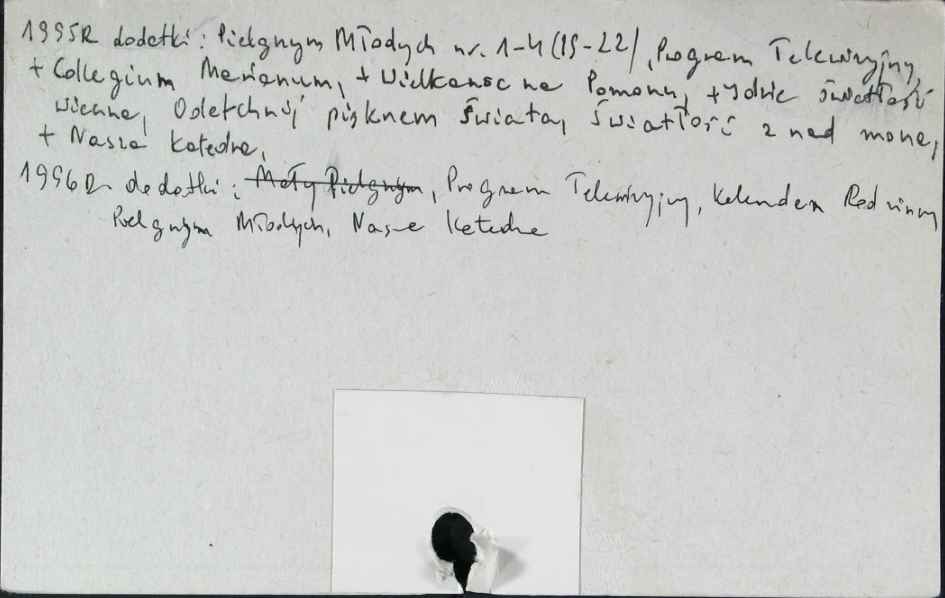 1995R dodatki: Pielgrzym Młodych nr. 1-4 (19-22), Program Telewizyjny,
+ Collegium Marianum, + Wielkanoc na Pomorzu, + Idzie światłość
wieczna, Odetchnij pięknem świata, Światłość z nad morza,
+ Nasza Katedra,
1996R dodatki: Mały Pielgrzym, Program Telewizyjny, Kalendarz Rodzinny
Pielgrzym Młodych, Nasza Katedra